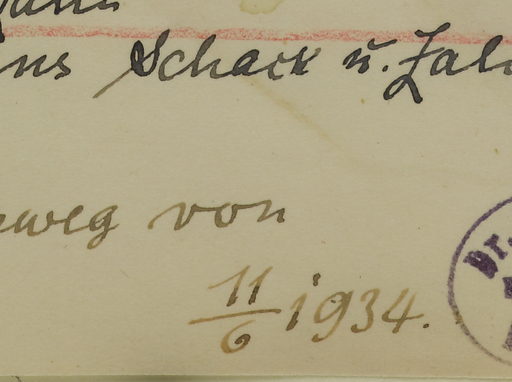 ns Schack u. Zal
weg von
11/6 1934.
Dr.